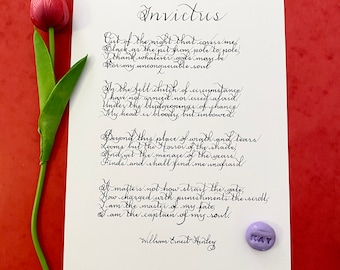 Invictus
Out of the night that covers me,
Black as the pit from pole to pole,
I thank whatever gods may be
For my unconquerable soul.
In the fell clutch of circumstance
I have not winced nor cried aloud.
Under the bludgeonings of chance
My head is bloody but unbowed.
Beyond this place of wrath and tears
Looms but the Horror of the shade,
And yet the menace of the years
Finds and shall find me unafraid.
It matters not how strait the gate,
How charged with punishments the scroll,
I am the master of my fate,
I am the captain of my soul.
William Ernest Henley
MAY